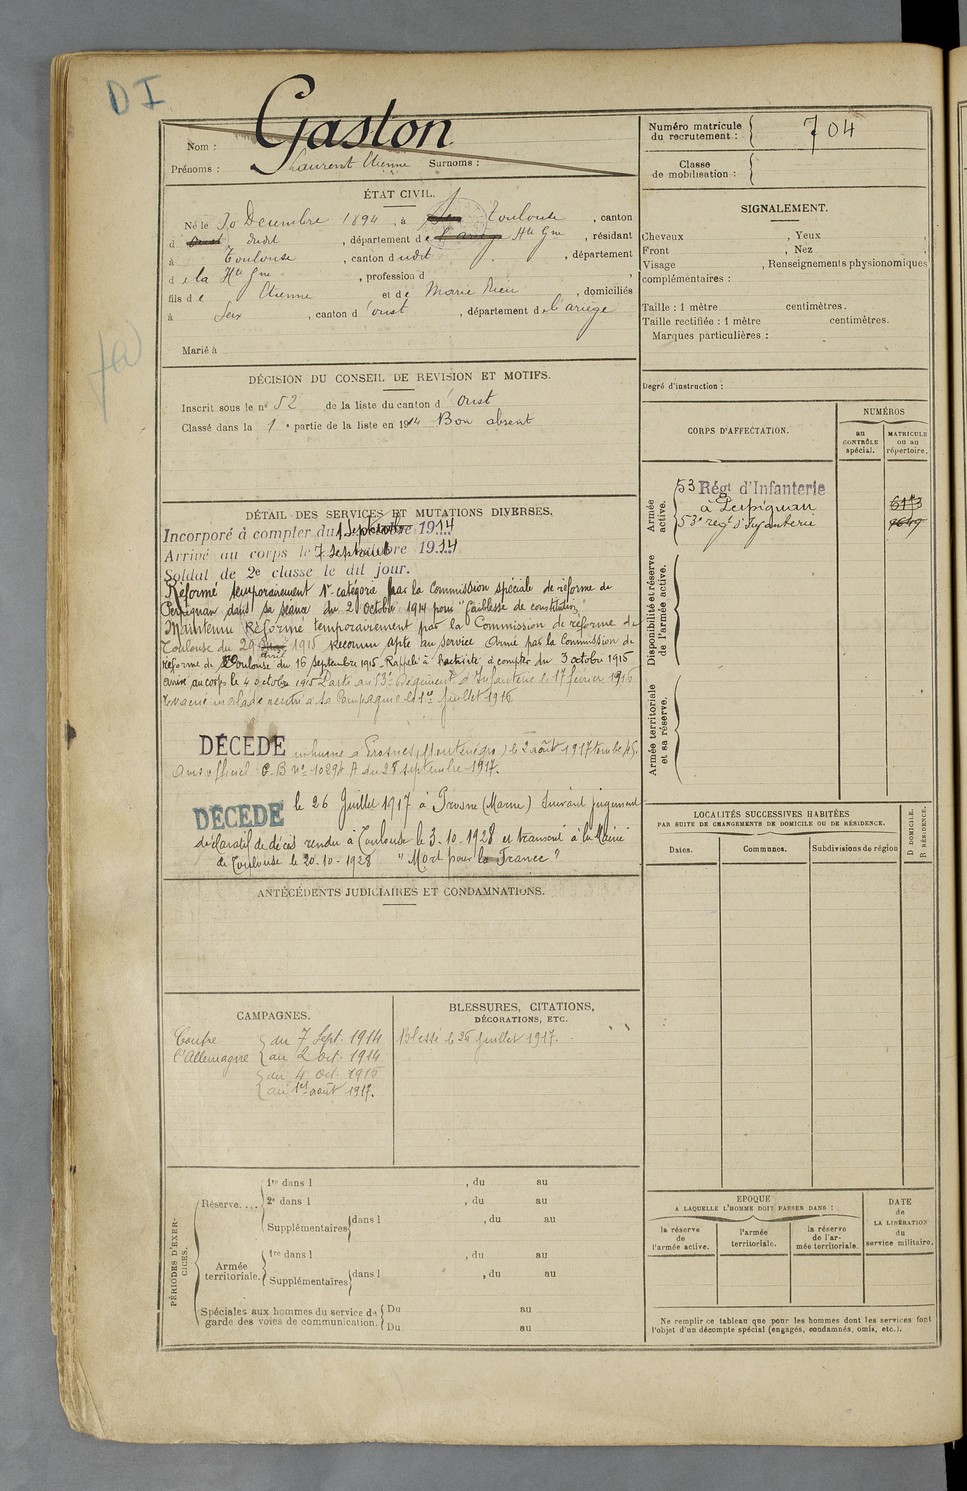 D I
Nom : Gaston
Prénoms : Laurent Etienne Surnoms :
Numéro matricule du recrutement : 704
Classe de mobilisation :
ÉTAT CIVIL.
Né le 30 Decembre 1894, à Toulouse, canton
d dudit, département de l'ariège Hte Gne, résidant
à Toulouse, canton dudit, département
de la Hte Gne, profession d
fils de Etienne et de Marie Rieu, domiciliés
à Seix, canton d'oust, département de l'ariège
Marié à
DÉCISION DU CONSEIL DE REVISION ET MOTIFS.
Inscrit sous le n° 52 de la liste du canton d'Oust
Classé dans la 1e partie de la liste en 1914 Bon absent
DÉTAIL DES SERVICES ET MUTATIONS DIVERSES.
Incorporé à compter du 1 Septembre 1914
Arrivé au corps le 7 Septembre 1914
Soldat de 2e classe le dit jour.
Réformé temporairement 1re catégorie par la Commission spéciale de réforme de
Perpignan dans sa séance du 2 octobre 1914 pour "faiblesse de constitution"
Maintenu Réformé temporairement par la Commission de réforme de
Toulouse du 29 avril 1915 Reconnu apte au service Armé par la Commission de
réforme de Toulouse du 16 septembre 1915. Rappelé à l'activité à compter du 3 octobre 1915
arrivé au corps le 4 octobre 1915 Parti au 53e Régiment d'Infanterie le 17 février 1916
Evacué malade rentré à sa Compagnie le 1er Juillet 1916.
DÉCÉDÉ inhumé à Prosnes (Montenegro) le 2 août 1917 tombe
Avis officiel C.B No 10298 A du 28 septembre 1917.
DÉCÉDÉ le 26 Juillet 1917 à Prosne (Marne) Suivant jugement
déclaratif de décès rendu à Toulouse le 3-10-1928 et transcrit à la Mairie
de Toulouse le 20-10-1928 "Mort pour la France"
ANTÉCÉDENTS JUDICIAIRES ET CONDAMNATIONS.
CAMPAGNES.
Contre l'Allemagne
du 7 Sept. 1914
au 2 oct. 1914
du 4 oct. 1915
au 1er août 1917.
BLESSURES, CITATIONS,
DÉCORATIONS, ETC.
Blessé le 26 juillet 1917.
PÉRIODES D'EXERCICES.
Réserve....
1re dans l , du au
2e dans l , du au
Supplémentaires dans l , du au
Armée territoriale.
1re dans l , du au
Supplémentaires dans l , du au
Spéciales aux hommes du service de garde des voies de communication.
Du au
Du au
SIGNALEMENT.
Cheveux , Yeux
Front , Nez
Visage , Renseignements physionomiques
complémentaires :
Taille : 1 mètre centimètres.
Taille rectifiée : 1 mètre centimètres.
Marques particulières :
Degré d'instruction :
CORPS D'AFFECTATION.
NUMÉROS
au CONTRÔLE spécial.
MATRICULE ou au répertoire.
Armée active.
53 Régt d'Infanterie
à Perpignan
53e regt d'Infanterie
Disponibilité et réserve de l'armée active.
Armée territoriale et sa réserve.
LOCALITÉS SUCCESSIVES HABITÉES
PAR SUITE DE CHANGEMENTS DE DOMICILE OU DE RÉSIDENCE.
Dates.
Communes.
Subdivisions de région
D DOMICILE.
R RÉSIDENCE.
EPOQUE
A LAQUELLE L'HOMME DOIT PASSER DANS :
la réserve de l'armée active.
l'armée territoriale.
la réserve de l'armée territoriale.
DATE de LA LIBÉRATION du service militaire.
Ne remplir ce tableau que pour les hommes dont les services font
l'objet d'un décompte spécial (engagés, condamnés, omis, etc.).